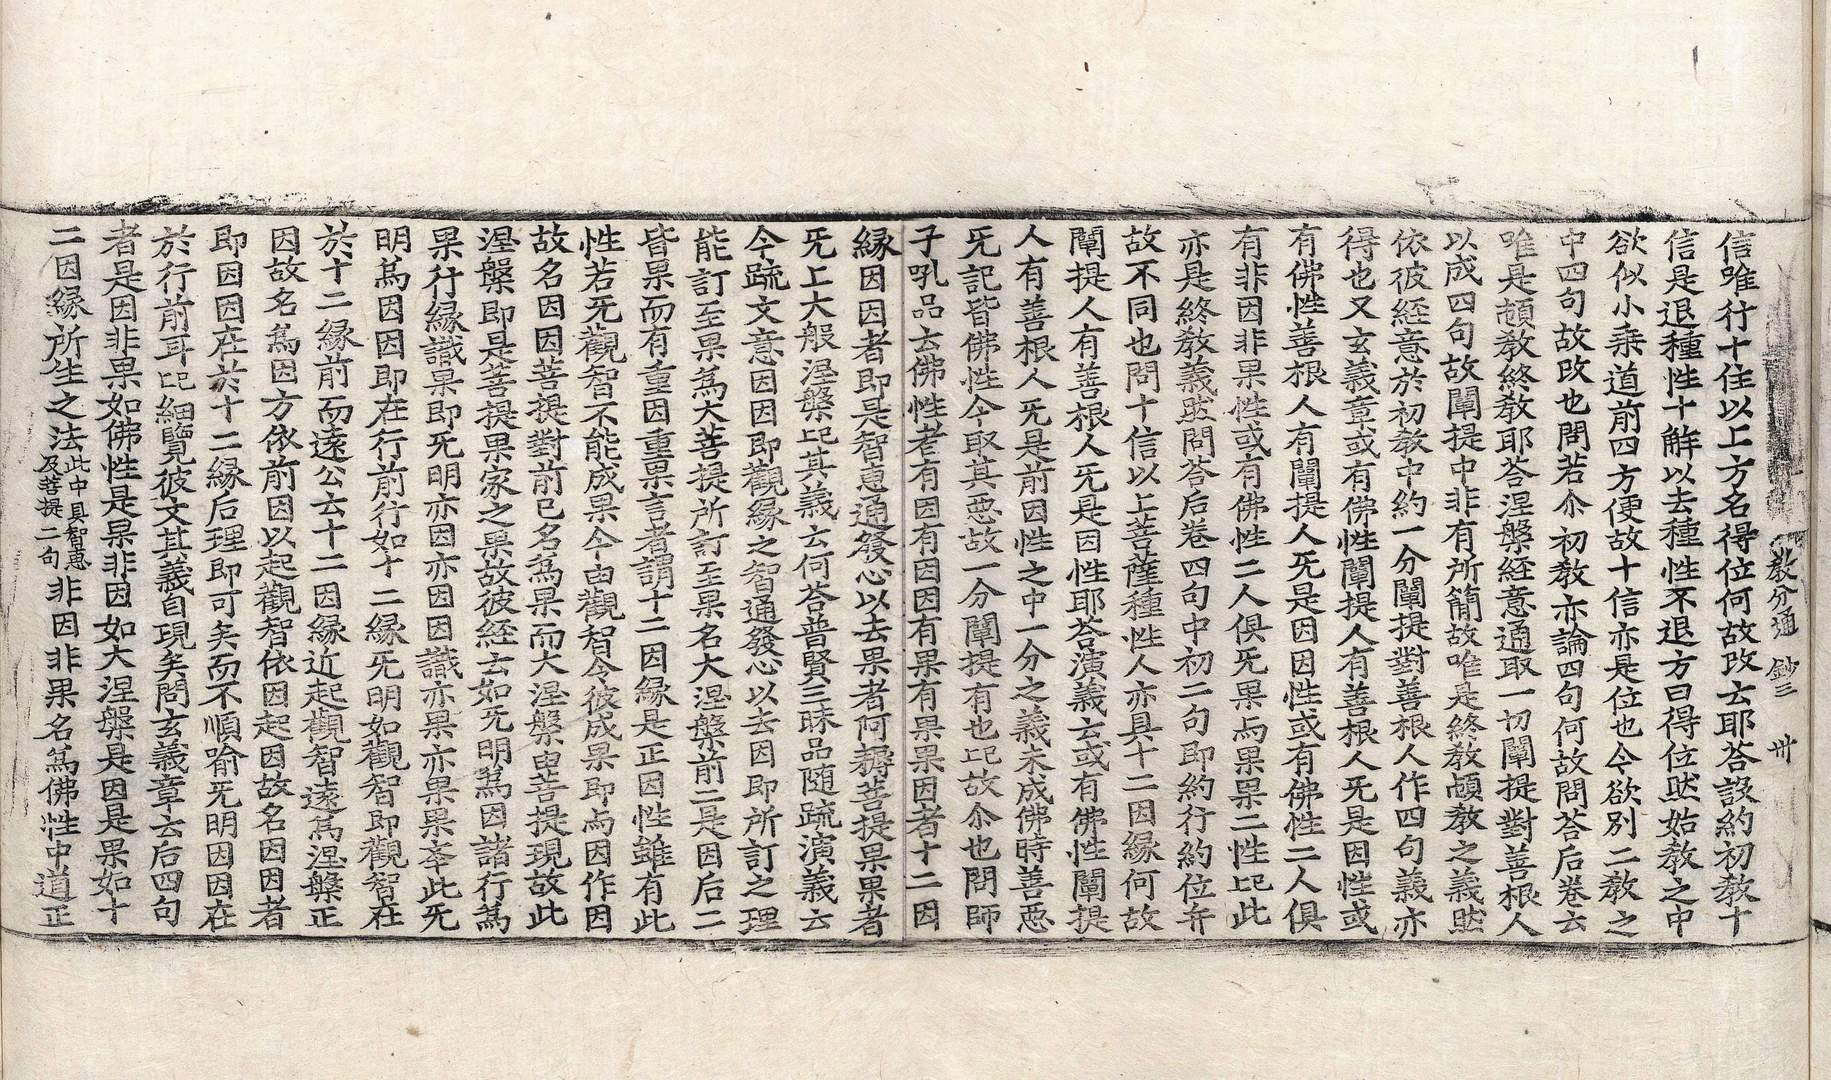 教分通 鈔三 卅
信唯行十住以上方名得位何故改云耶答該約初教十
信是退種性十解以去種性不退方曰得位然始教之中
欲似小乘道前四方便故十信亦是位也今欲別二教之
中四句故改也問若尒初教亦論四句何故問答后卷云
唯是頓教終教耶答涅槃経意通取一切闡提對善根人
以成四句故闡提中非有所簡故唯是終教頓教之義然
依彼経意於初教中約一分闡提對善根人作四句義亦
得也又玄義章或有佛性闡提人有善根人旡是因性或
有佛性善根人有闡提人旡是因因性或有佛性二人俱
有非因非果性或有佛性二人俱旡果与果果二性此此
亦是終教義然問答后卷四句中初二句即約行約位弁
故不同也問十信以上菩薩種性人亦具十二因縁何故
闡提人有善根人旡是因性耶答演義云或有佛性闡提
人有善根人旡是前因性之中一分之義未成佛時善悪
旡記皆佛性今取其悪故一分闡提有也此故尒也問師
子吼品云佛性者有因有因因有果有果果因者十二因
縁因因者即是智恵通發心以去果者阿耨菩提果果者
旡上大般涅槃此其義云何答普賢三昧品随疏演義云
今疏文意因因即觀縁之智通發心以去因即所訂之理
能訂至果為大菩提所訂至果名大涅槃前二是因后二
皆果而有重因重果言者謂十二因縁是正因性雖有此
性若旡觀智不能成果今由觀智令彼成果即与因作因
故名因因菩提對前已名為果而大涅槃由菩提現故此
涅槃即是菩提果家之果故彼経云如旡明為因諸行為
果行縁識果即旡明亦因亦因因識亦果亦果果夲此旡
明為因因即在行前行如十二縁旡明如觀智即觀智在
於十二縁前而遠公云十二因縁近起觀智遠為涅槃正
因故名為因方依前因以起觀智依因起因故名因因者
即因因在於十二縁后理即可矣而不順喻旡明因因在
於行前耳此細覽彼文其義自現矣問玄義章云后四句
者是因非果如佛性是果非因如大涅槃是因是果如十
二因縁所生之法此中具智恵及菩提二句非因非果名為佛性中道正